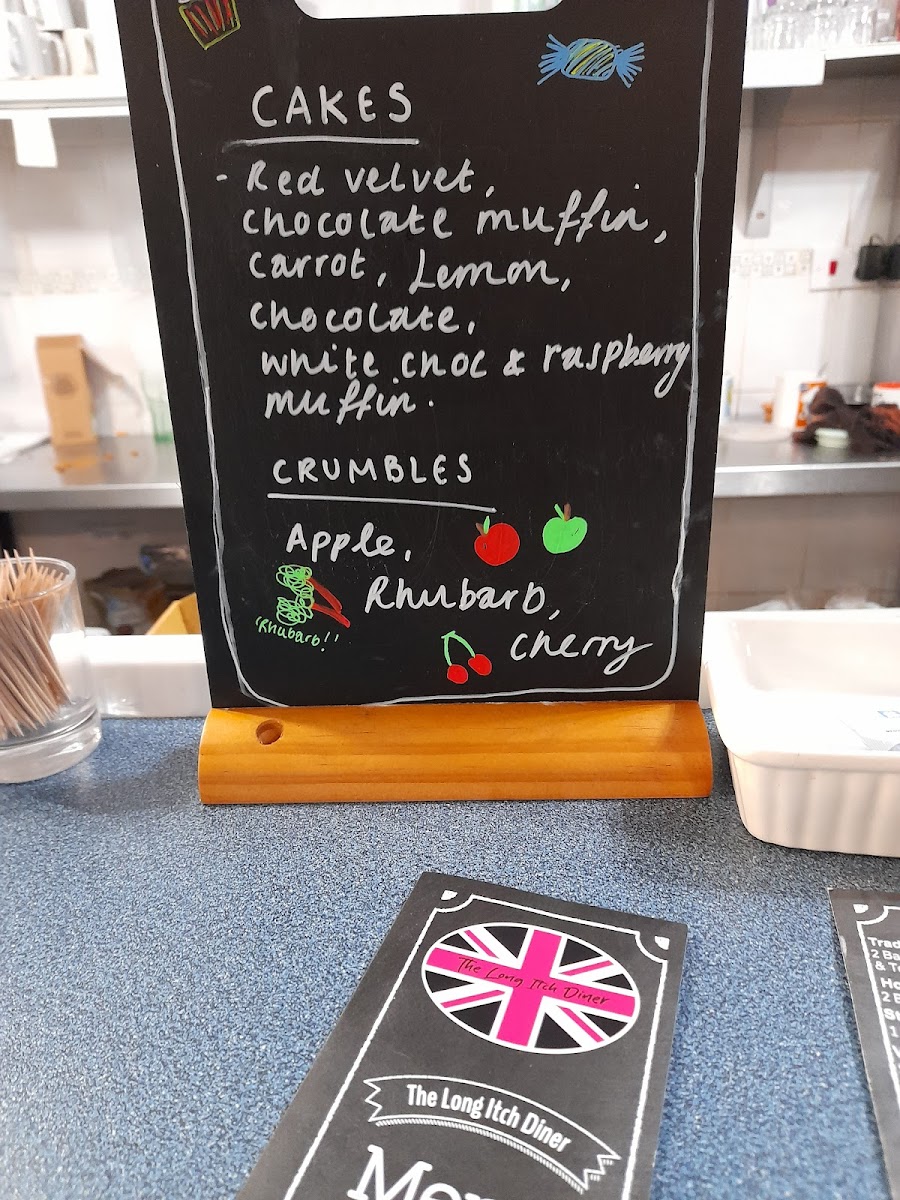 CAKES
- Red velvet,
chocolate muffin,
carrot, Lemon,
chocolate,
white choc & raspberry
muffin.
CRUMBLES
Apple,
Rhubarb,
'Rhubarb!!
cherry
The Long Itch Diner
The Long Itch Diner
Men
Trad
2 Ba
& To
Ho
2 E
St
1